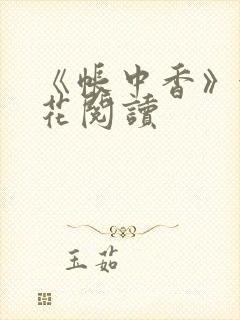 《帳中香》
花閱讀
玉茹